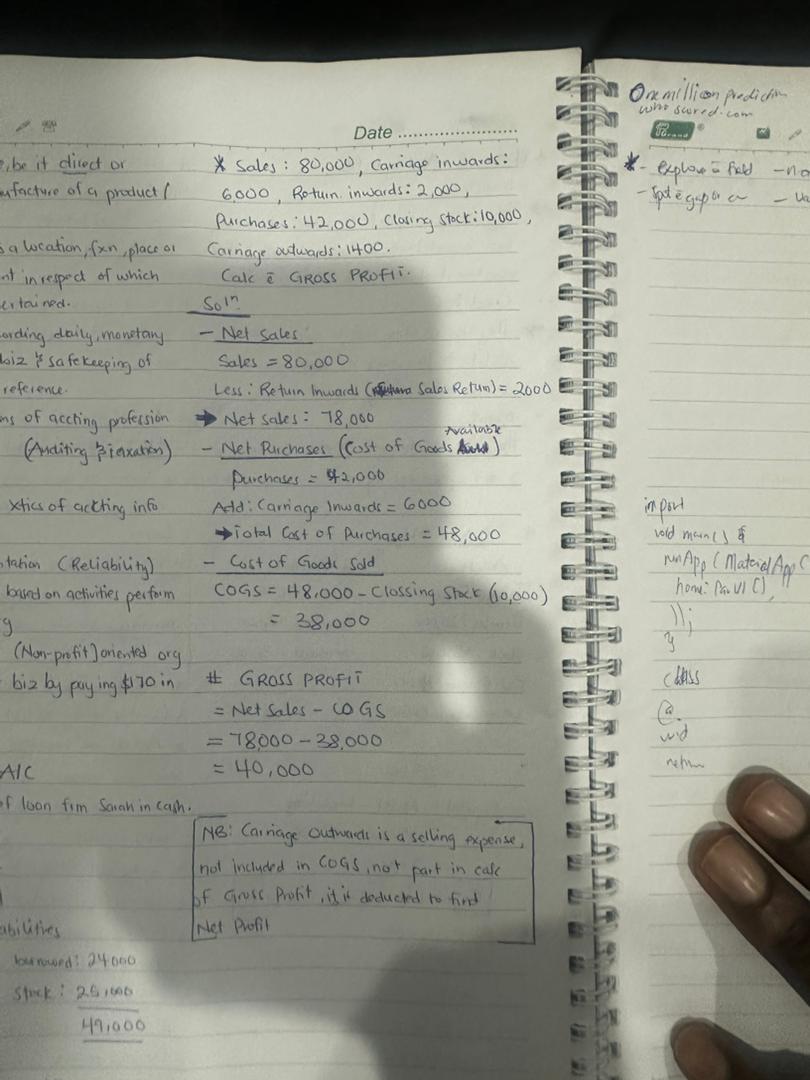 Date
be it direct or
ufacture of a product /
a location, fxn, place or
nt in respect of which
ertained.
ording daily, monetary
biz & safekeeping of
reference.
ns of acctıng profession
(Auditing & Taxation)
xtics of accting info
tation (Reliability)
based on activities perform
g
(Non-profit) oriented org
biz by paying $170 in
A/C
of loan frm Sarah in cash.
abilities
borrowed: 24000
Stock: 25,000
49,000
* Sales: 80,000, Carriage inwards:
6000, Return inwards: 2,000,
Purchases: 42,000, Closing Stock: 10,000,
Carriage outwards: 1400.
Calc ē GROSS PROFIT.
Soln
- Net Sales
Sales = 80,000
Less: Return Inwards (Sales Return) = 2000
→ Net sales: 78,000
Available
- Net Purchases (Cost of Goods)
Purchases = 42,000
Add: Carriage Inwards = 6000
→ Total Cost of Purchases = 48,000
- Cost of Goods Sold
COGS = 48,000 - Clossing Stock (10,000)
= 38,000
# GROSS PROFIT
= Net Sales - COGS
= 78,000 - 38,000
= 40,000
NB: Carriage Outwards is a selling expense,
not included in COGS, not part in calc
of Gross Profit, it is deducted to find
Net Profit
One million prediction
who scored.com
* - explore ē field
- Spot ē gap or
import
void main() {
runApp (MaterialApp (
home:
));
}
class
@
void
return